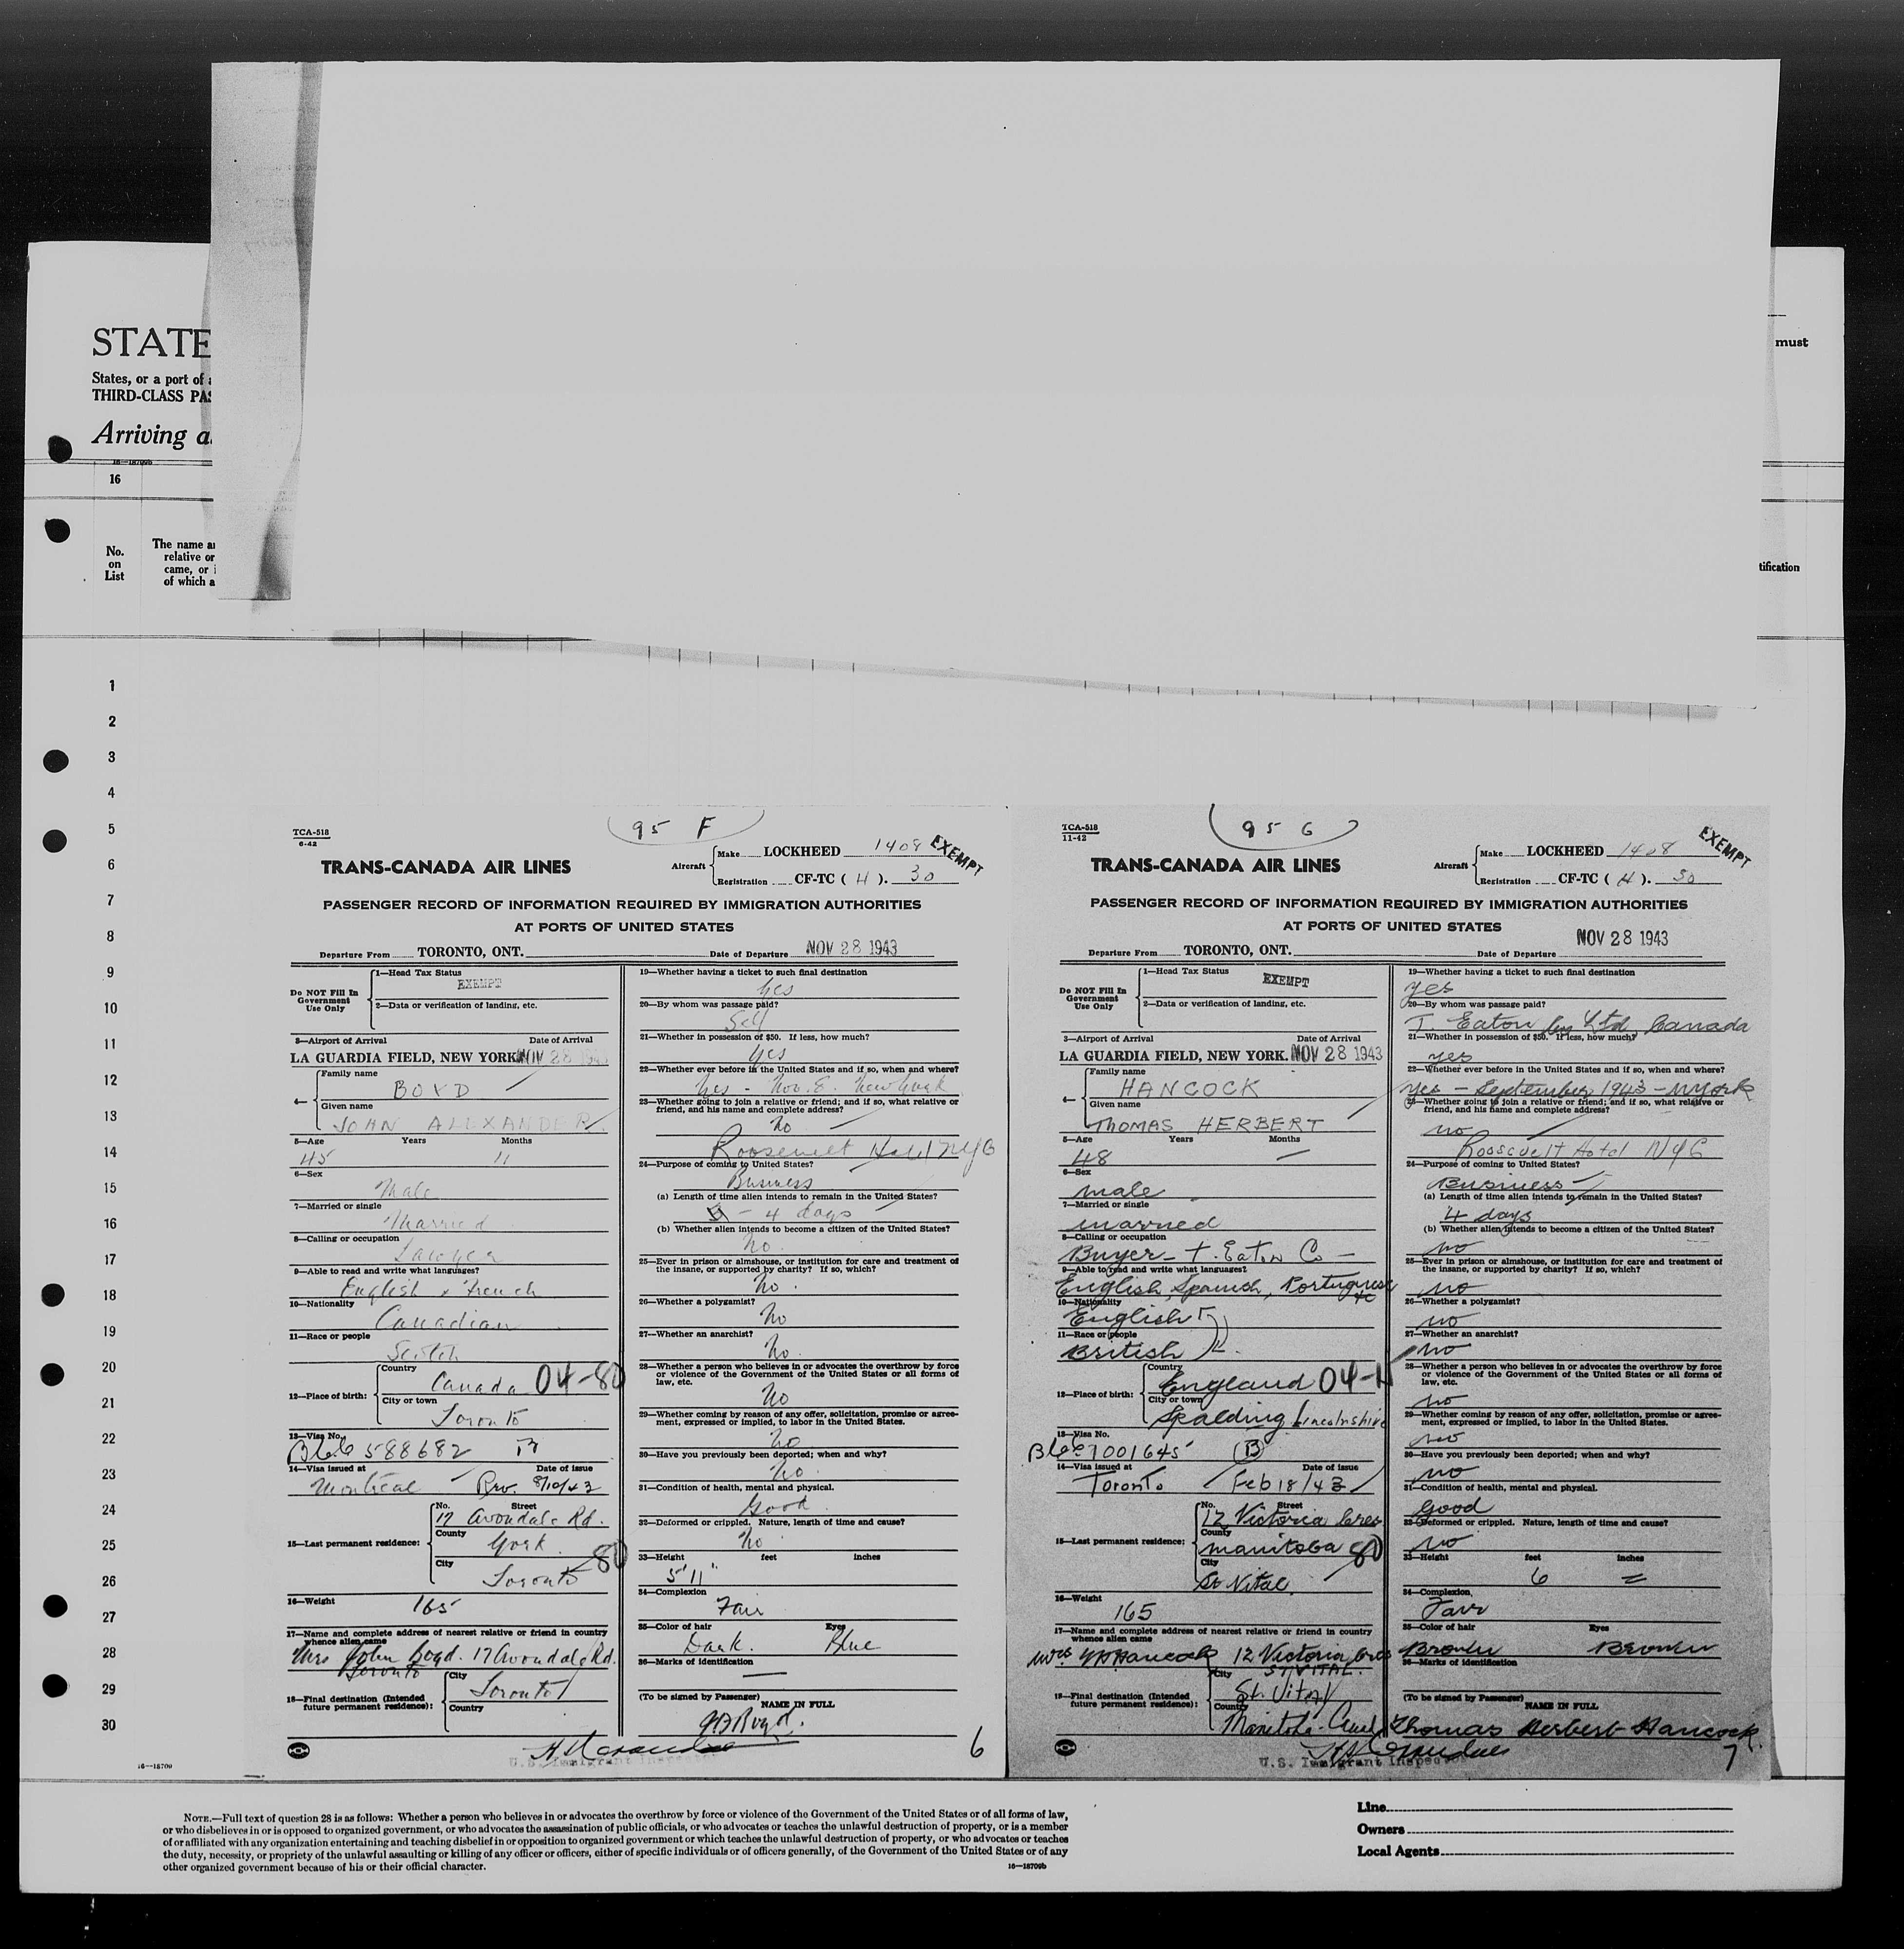 STATE
must
States, or a port of a
THIRD-CLASS PAS
Arriving a
16—18709b
16
No.
on
List
The name a
relative or
came, or i
of which a
tification
1
2
3
4
5
6
7
8
9
10
11
12
13
14
15
16
17
18
19
20
21
22
23
24
25
26
27
28
29
30
16—18709
95 F
TCA-518
6-42
TRANS-CANADA AIR LINES
Aircraft
Make LOCKHEED 1408
EXEMPT
Registration CF-TC ( H ). 30
PASSENGER RECORD OF INFORMATION REQUIRED BY IMMIGRATION AUTHORITIES
AT PORTS OF UNITED STATES
Departure From TORONTO, ONT. Date of Departure NOV 28 1943
Do NOT Fill In
Government
Use Only
1—Head Tax Status
EXEMPT
2—Data or verification of landing, etc.
3—Airport of Arrival Date of Arrival
LA GUARDIA FIELD, NEW YORK. NOV 28 1943
4— Family name
BOYD
Given name
JOHN ALEXANDER
5—Age Years Months
45 11
6—Sex
Male
7—Married or single
Married
8—Calling or occupation
Lawyer
9—Able to read and write what languages?
English & French
10—Nationality
Canadian
11—Race or people
Scotch
12—Place of birth:
Country
Canada 04-80
City or town
Toronto
13—Visa No.
588682 B
14—Visa issued at Date of issue
Montreal Rev. 8/10/43
15—Last permanent residence:
No. Street
17 Avondale Rd.
County
York
80
City
Toronto
16—Weight 165
17—Name and complete address of nearest relative or friend in country
whence alien came
Mrs John Boyd. 17 Avondale Rd.
Toronto
18—Final destination (Intended
future permanent residence):
City
Toronto
Country
19—Whether having a ticket to such final destination
Yes
20—By whom was passage paid?
Self
21—Whether in possession of $50. If less, how much?
Yes
22—Whether ever before in the United States and if so, when and where?
Yes - Nov. 8. New York
23—Whether going to join a relative or friend; and if so, what relative or
friend, and his name and complete address?
No
Roosevelt Hotel NYC
24—Purpose of coming to United States?
Business
(a) Length of time alien intends to remain in the United States?
- 4 days
(b) Whether alien intends to become a citizen of the United States?
No.
25—Ever in prison or almshouse, or institution for care and treatment of
the insane, or supported by charity? If so, which?
No.
26—Whether a polygamist?
No
27—Whether an anarchist?
No.
28—Whether a person who believes in or advocates the overthrow by force
or violence of the Government of the United States or all forms of
law, etc.
No
29—Whether coming by reason of any offer, solicitation, promise or agree-
ment, expressed or implied, to labor in the United States.
No
30—Have you previously been deported; when and why?
No.
31—Condition of health, mental and physical.
Good
32—Deformed or crippled. Nature, length of time and cause?
No
33—Height feet inches
5'11"
34—Complexion
Fair
35—Color of hair Eyes
Dark. Blue
36—Marks of identification
(To be signed by Passenger)
NAME IN FULL
JA Boyd.
U.S. Immigrant Inspector
6
95 G
TCA-518
11-42
TRANS-CANADA AIR LINES
Aircraft
Make LOCKHEED 1408
EXEMPT
Registration CF-TC ( H ). 30
PASSENGER RECORD OF INFORMATION REQUIRED BY IMMIGRATION AUTHORITIES
AT PORTS OF UNITED STATES
Departure From TORONTO, ONT. Date of Departure NOV 28 1943
Do NOT Fill In
Government
Use Only
1—Head Tax Status
EXEMPT
2—Data or verification of landing, etc.
3—Airport of Arrival Date of Arrival
LA GUARDIA FIELD, NEW YORK. NOV 28 1943
4— Family name
HANCOCK
Given name
THOMAS HERBERT
5—Age Years Months
48 —
6—Sex
male
7—Married or single
married
8—Calling or occupation
Buyer - T. Eaton Co —
9—Able to read and write what languages?
English, Spanish, Portuguese
10—Nationality
English
11—Race or people
British
12—Place of birth:
Country
England 04-
City or town
Spalding Lincolnshire
13—Visa No.
7001645 (B)
14—Visa issued at Date of issue
Toronto Feb 18/43
15—Last permanent residence:
No. Street
12 Victoria Cres
County
manitoba 80
City
St Vital.
16—Weight
165
17—Name and complete address of nearest relative or friend in country
whence alien came
Mrs Hancock 12 Victoria Cres
ST VITAL.
18—Final destination (Intended
future permanent residence):
City
St. Vital
Country
Manitoba-
19—Whether having a ticket to such final destination
yes
20—By whom was passage paid?
T. Eaton Coy Ltd, Canada
21—Whether in possession of $50. If less, how much?
yes
22—Whether ever before in the United States and if so, when and where?
yes - September 1943 - NYork
23—Whether going to join a relative or friend; and if so, what relative or
friend, and his name and complete address?
no
Roosevelt Hotel NYC
24—Purpose of coming to United States?
Business
(a) Length of time alien intends to remain in the United States?
4 days
(b) Whether alien intends to become a citizen of the United States?
no
25—Ever in prison or almshouse, or institution for care and treatment of
the insane, or supported by charity? If so, which?
no
26—Whether a polygamist?
no
27—Whether an anarchist?
no
28—Whether a person who believes in or advocates the overthrow by force
or violence of the Government of the United States or all forms of
law, etc.
no
29—Whether coming by reason of any offer, solicitation, promise or agree-
ment, expressed or implied, to labor in the United States.
no
30—Have you previously been deported; when and why?
no
31—Condition of health, mental and physical.
Good
32—Deformed or crippled. Nature, length of time and cause?
no
33—Height feet inches
6 =
34—Complexion
Fair
35—Color of hair Eyes
Brown Brown
36—Marks of identification
(To be signed by Passenger)
NAME IN FULL
Thomas Herbert Hancock.
U.S. Immigrant Inspector
7
NOTE.—Full text of question 28 is as follows: Whether a person who believes in or advocates the overthrow by force or violence of the Government of the United States or of all forms of law,
or who disbelieves in or is opposed to organized government, or who advocates the assassination of public officials, or who advocates or teaches the unlawful destruction of property, or is a member
of or affiliated with any organization entertaining and teaching disbelief in or opposition to organized government or which teaches the unlawful destruction of property, or who advocates or teaches
the duty, necessity, or propriety of the unlawful assaulting or killing of any officer or officers, either of specific individuals or of officers generally, of the Government of the United States or of any
other organized government because of his or their official character.
16—18709b
Line
Owners
Local Agents